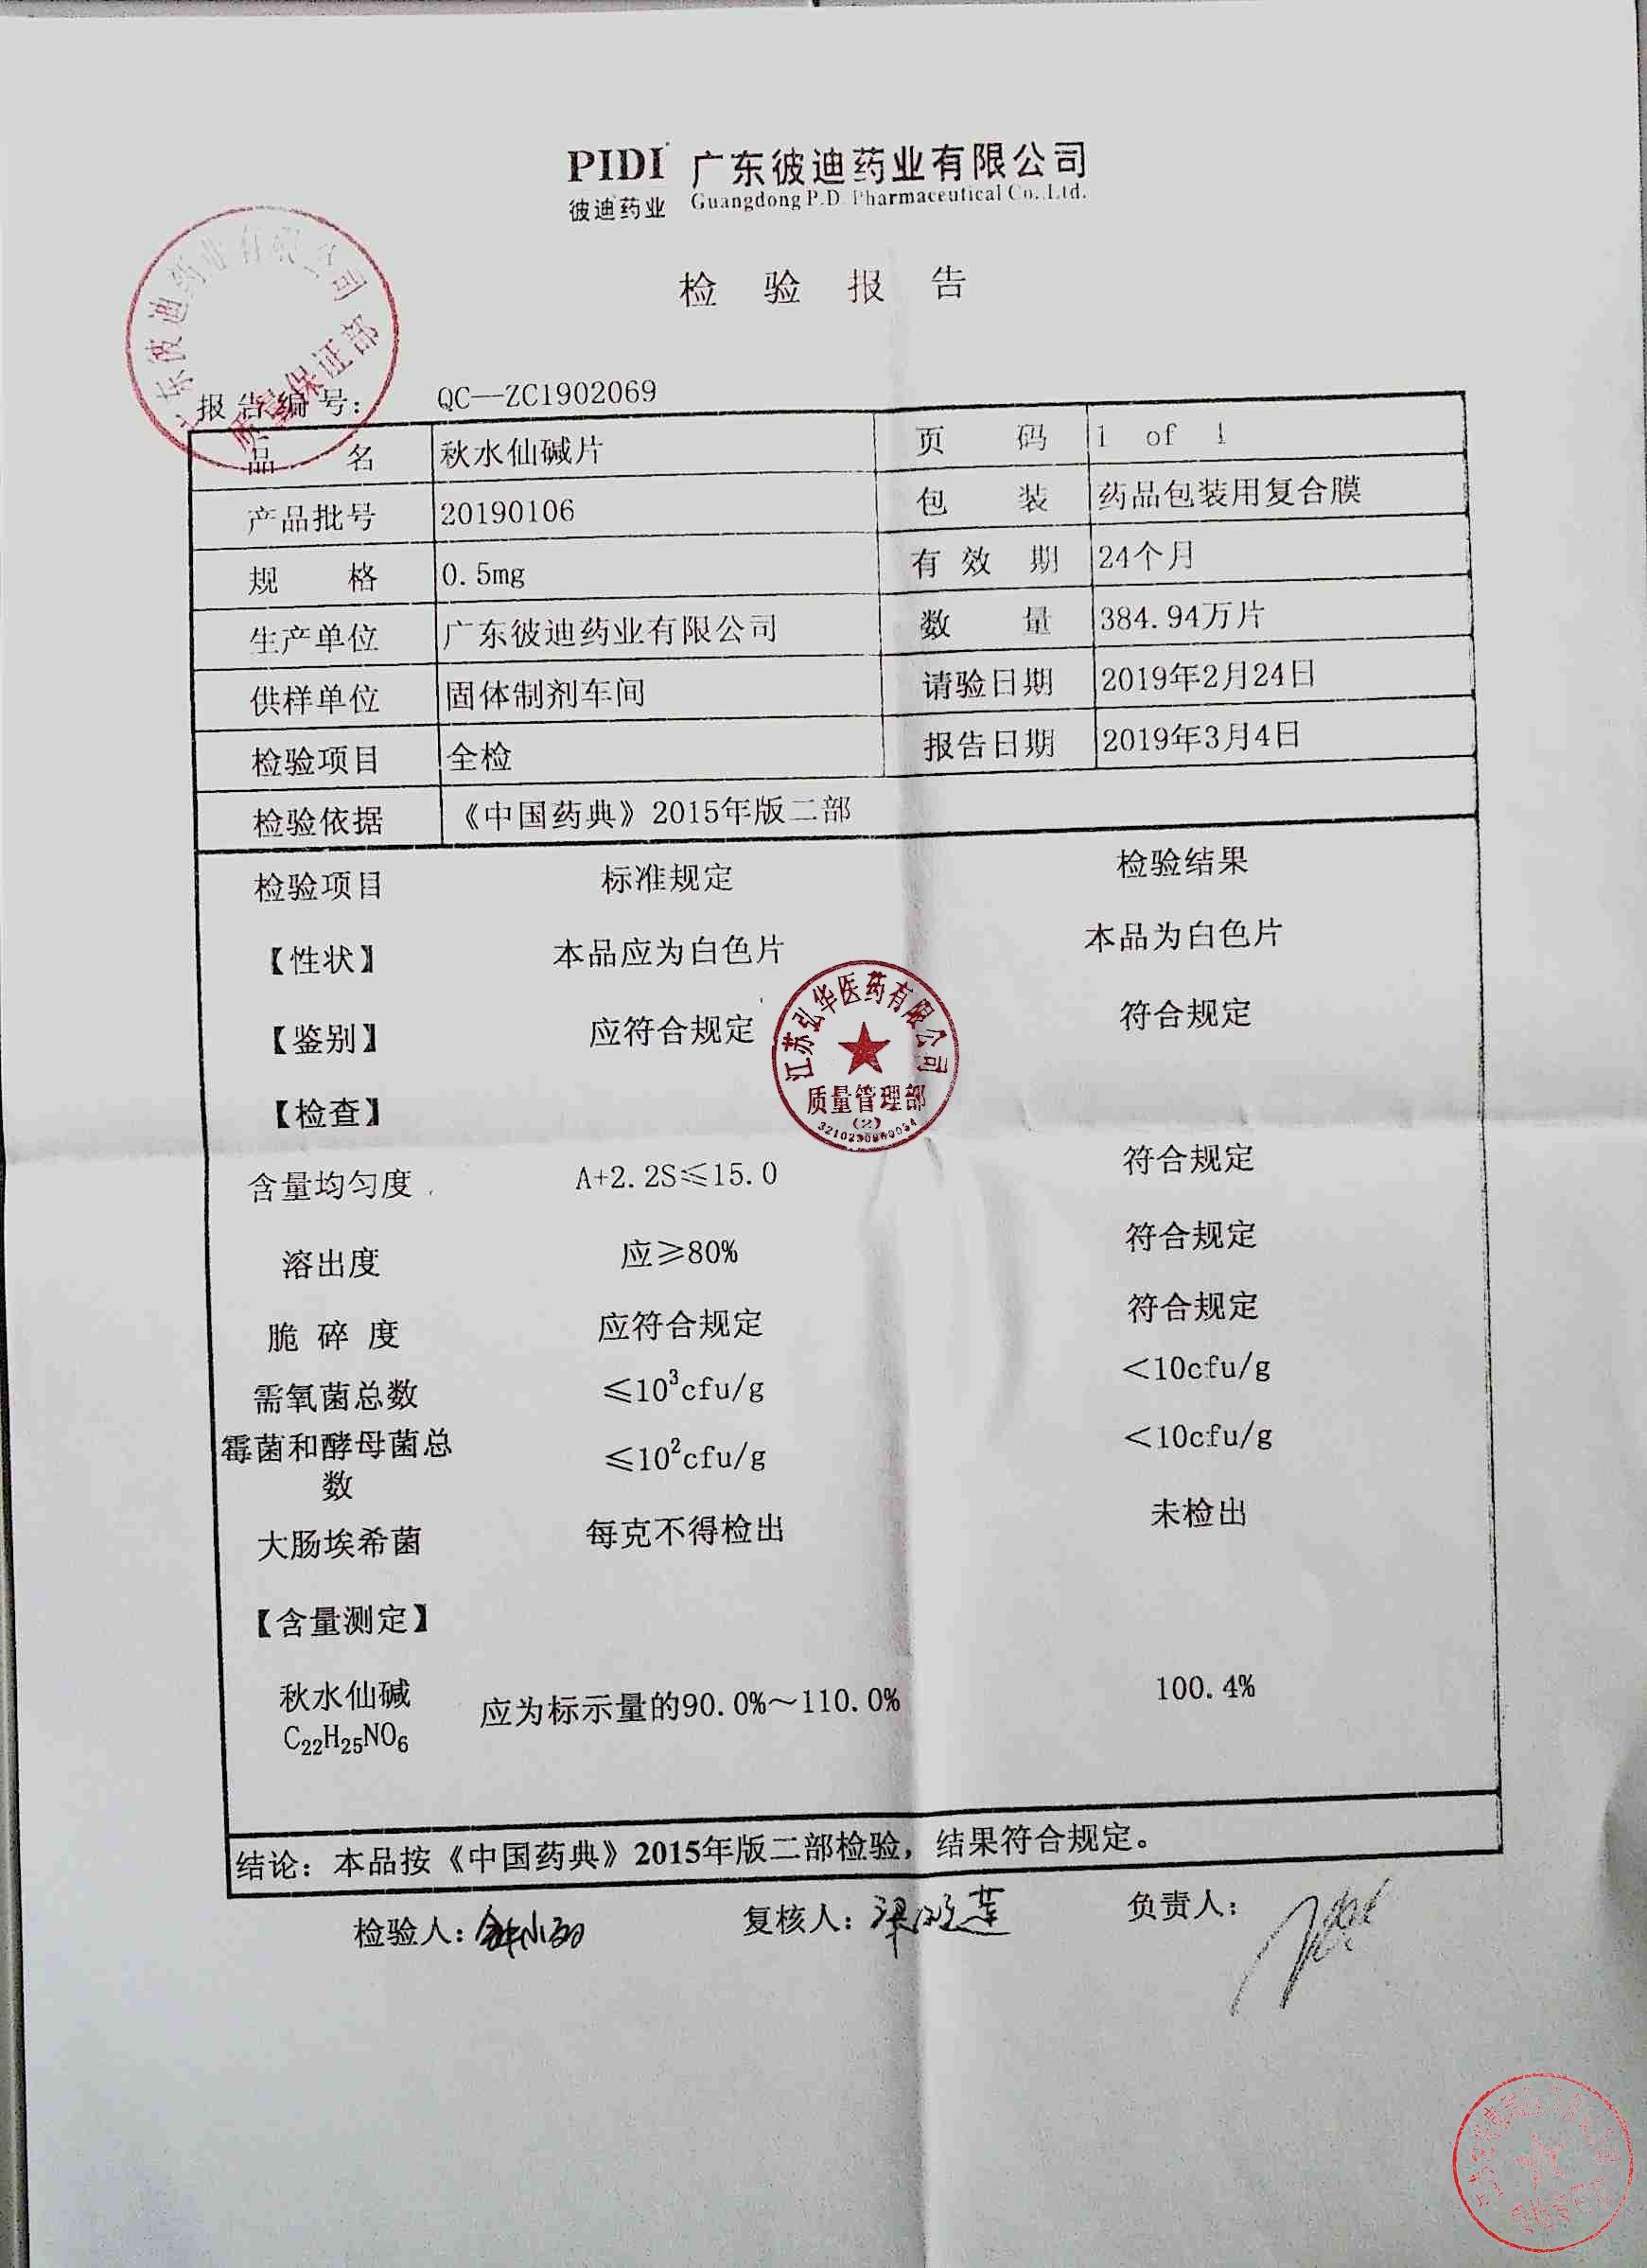 PIDI 广东彼迪药业有限公司
彼迪药业 Guangdong P.D. Pharmaceutical Co.,Ltd.
检 验 报 告
广东彼迪药业有限公司
质量保证部
报告编号: QC—ZC1902069
品 名 秋水仙碱片 页 码 1 of 1
产品批号 20190106 包 装 药品包装用复合膜
规 格 0.5mg 有 效 期 24个月
生产单位 广东彼迪药业有限公司 数 量 384.94万片
供样单位 固体制剂车间 请验日期 2019年2月24日
检验项目 全检 报告日期 2019年3月4日
检验依据 《中国药典》2015年版二部
检验项目 标准规定 检验结果
【性状】 本品应为白色片 本品为白色片
【鉴别】 应符合规定 符合规定
江苏弘华医药有限公司
质量管理部
(2)
【检查】
含量均匀度 A+2.2S≤15.0 符合规定
溶出度 应≥80% 符合规定
脆 碎 度 应符合规定 符合规定
需氧菌总数 ≤10³cfu/g <10cfu/g
霉菌和酵母菌总 ≤10²cfu/g <10cfu/g
数
大肠埃希菌 每克不得检出 未检出
【含量测定】
秋水仙碱 应为标示量的90.0%～110.0% 100.4%
C₂₂H₂₅NO₆
结论：本品按《中国药典》2015年版二部检验，结果符合规定。
检验人: 复核人: 负责人: